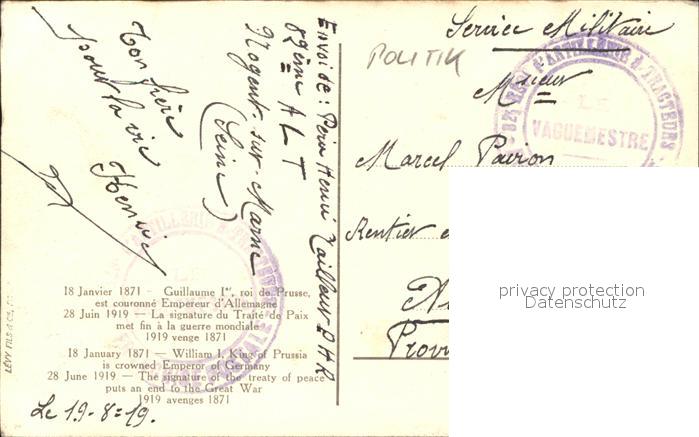 Service Militaire
POLITIK
Msieur
Marcel Pairon
Rentier
Prov
82e REG D'ARTILLERIE à TRACTEURS
LE
VAGUEMESTRE
privacy protection
Datenschutz
Envoi de : Henri
82ème A L T
Nogent-sur-Marne
(Seine)
Ton frère
pour la vie
Henri
18 Janvier 1871 - Guillaume Ier, roi de Prusse,
est couronné Empereur d'Allemagne
28 Juin 1919 — La signature du Traité de Paix
met fin à la guerre mondiale
1919 venge 1871
18 January 1871 — William I, King of Prussia
is crowned Emperor of Germany
28 June 1919 — The signature of the treaty of peace
puts an end to the Great War
1919 avenges 1871
LÉVY FILS & Cie
Le 19-8=19.